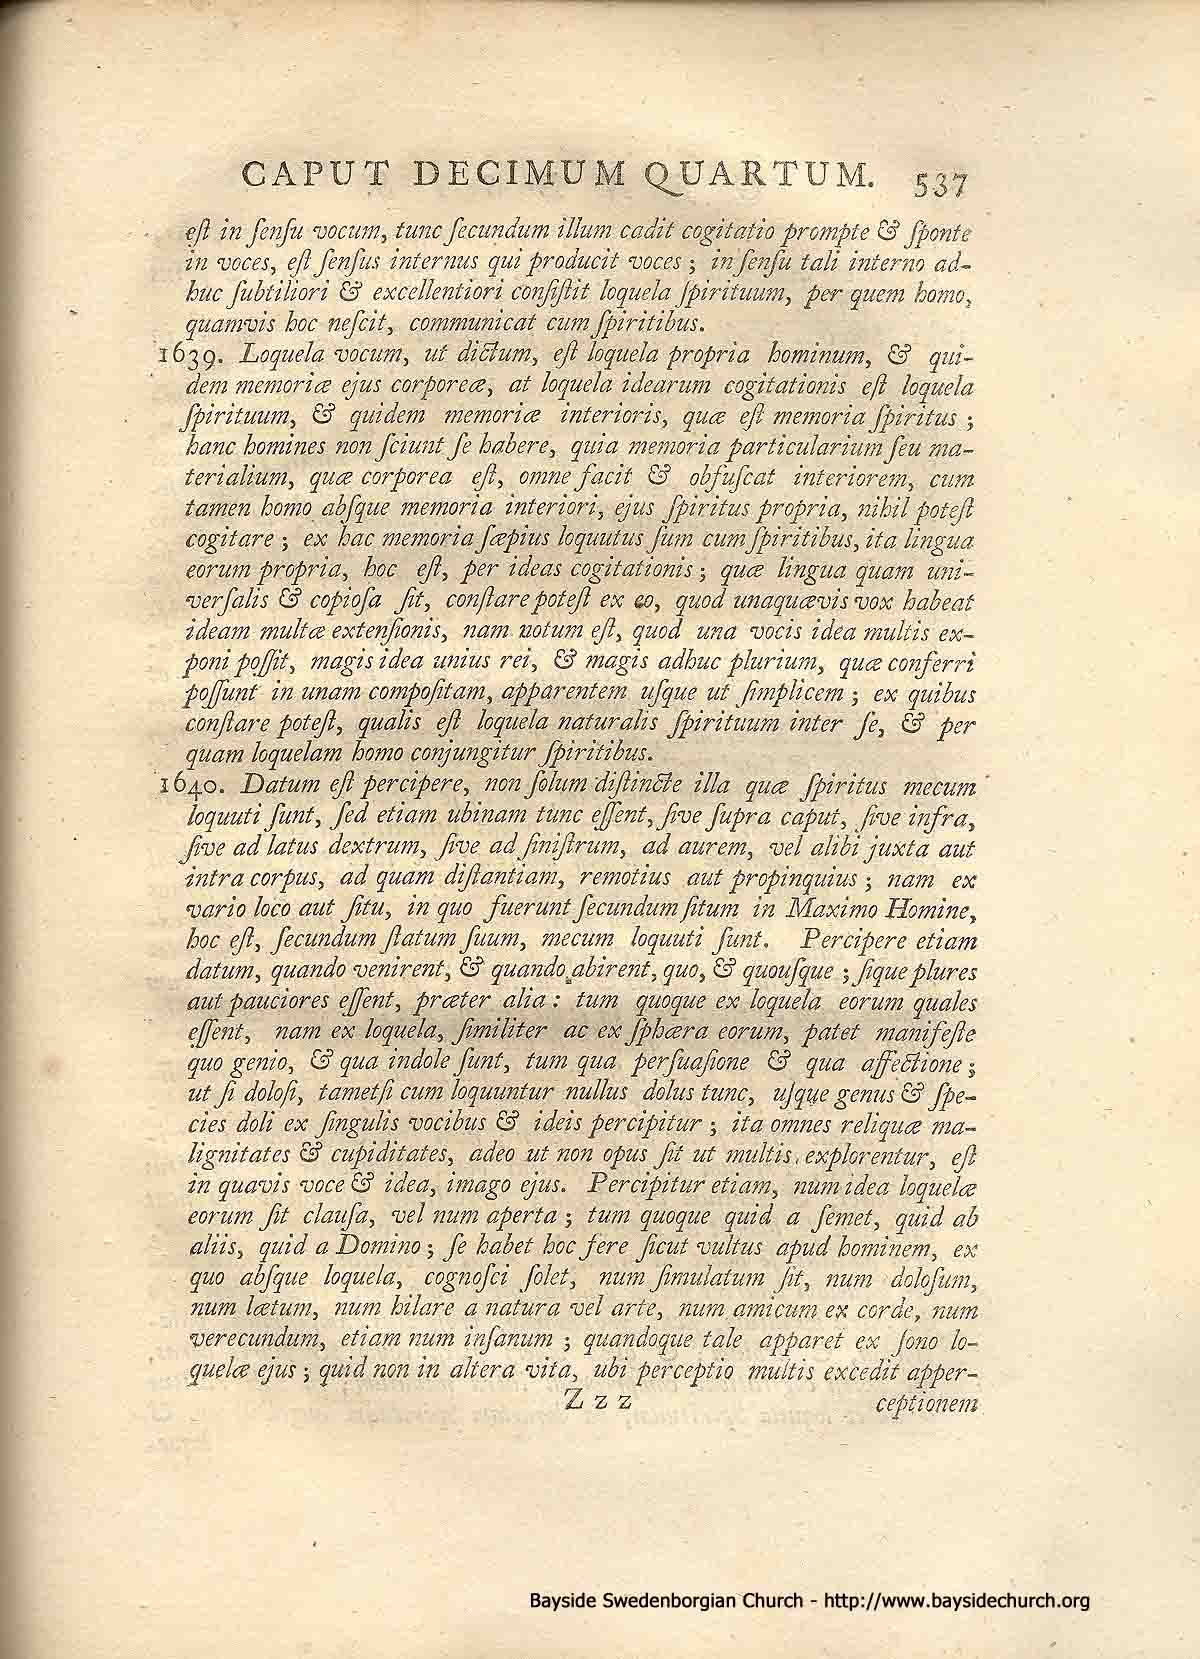 CAPUT DECIMUM QUARTUM. 537
eſt in ſenſu vocum, tunc ſecundum illum cadit cogitatio prompte & ſponte
in voces, eſt ſenſus internus qui producit voces; in ſenſu tali interno ad-
huc ſubtiliori & excellentiori conſiſtit loquela ſpirituum, per quem homo,
quamvis hoc neſcit, communicat cum ſpiritibus.
1639. Loquela vocum, ut dictum, eſt loquela propria hominum, & qui-
dem memoriæ ejus corporeæ, at loquela idearum cogitationis eſt loquela
ſpirituum, & quidem memoriæ interioris, quæ eſt memoria ſpiritus;
hanc homines non ſciunt ſe habere, quia memoria particularium ſeu ma-
terialium, quæ corporea eſt, omne facit & obfuſcat interiorem, cum
tamen homo abſque memoria interiori, ejus ſpiritus propria, nihil poteſt
cogitare; ex hac memoria ſæpius loquutus ſum cum ſpiritibus, ita lingua
eorum propria, hoc eſt, per ideas cogitationis; quæ lingua quam uni-
verſalis & copioſa ſit, conſtare poteſt ex eo, quod unaquævis vox habeat
ideam multæ extenſionis, nam notum eſt, quod una vocis idea multis ex-
poni poſſit, magis idea unius rei, & magis adhuc plurium, quæ conferri
poſſunt in unam compoſitam, apparentem uſque ut ſimplicem; ex quibus
conſtare poteſt, qualis eſt loquela naturalis ſpirituum inter ſe, & per
quam loquelam homo conjungitur ſpiritibus.
1640. Datum eſt percipere, non ſolum diſtincte illa quæ ſpiritus mecum
loquuti ſunt, ſed etiam ubinam tunc eſſent, ſive ſupra caput, ſive infra,
ſive ad latus dextrum, ſive ad ſiniſtrum, ad aurem, vel alibi juxta aut
intra corpus, ad quam diſtantiam, remotius aut propinquius; nam ex
vario loco aut ſitu, in quo fuerunt ſecundum ſitum in Maximo Homine,
hoc eſt, ſecundum ſtatum ſuum, mecum loquuti ſunt. Percipere etiam
datum, quando venirent, & quando abirent, quo, & quouſque; ſique plures
aut pauciores eſſent, præter alia: tum quoque ex loquela eorum quales
eſſent, nam ex loquela, ſimiliter ac ex ſphæra eorum, patet manifeſte
quo genio, & qua indole ſunt, tum qua perſuaſione & qua affectione;
ut ſi doloſi, tametſi cum loquuntur nullus dolus tunc, uſque genus & ſpe-
cies doli ex ſingulis vocibus & ideis percipitur; ita omnes reliquæ ma-
lignitates & cupiditates, adeo ut non opus ſit ut multis explorentur, eſt
in quavis voce & idea, imago ejus. Percipitur etiam, num idea loquelæ
eorum ſit clauſa, vel num aperta; tum quoque quid a ſemet, quid ab
aliis, quid a Domino; ſe habet hoc fere ſicut vultus apud hominem, ex
quo abſque loquela, cognoſci ſolet, num ſimulatum ſit, num doloſum,
num lætum, num hilare a natura vel arte, num amicum ex corde, num
verecundum, etiam num inſanum; quandoque tale apparet ex ſono lo-
quelæ ejus; quid non in altera vita, ubi perceptio multis excedit apper-
Z z z ceptionem
Bayside Swedenborgian Church - http://www.baysidechurch.org